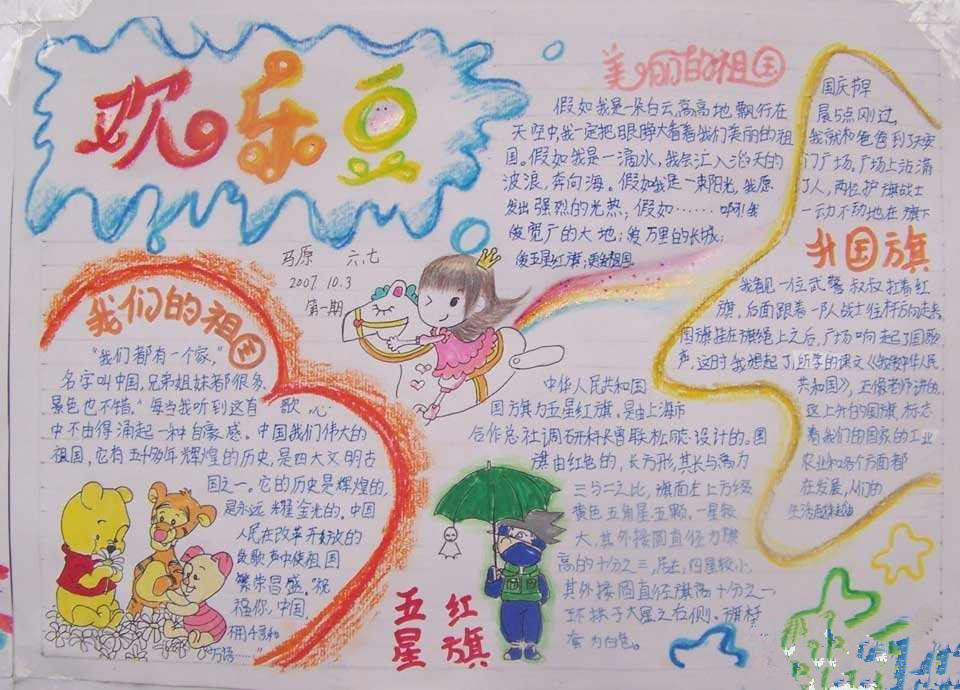 欢乐豆
马原 六.七
2007.10.3
第一期
美丽的祖国
假如我是一朵白云,高高地飘行在
天空中,我一定把眼睁大看着我们美丽的祖
国。假如我是一滴水,我条汇入滔天的
波浪,奔向海。假如我是一束阳光,我愿
发出强烈的光热;假如……啊!我
爱宽广的大地;爱万里的长城;
爱五星红旗;
升国旗
国庆节早
晨5点刚过,
我就和爸爸到了天安
门广场。广场上站满
了人,两位护旗战士
一动不动地在旗下
我看见一位武警叔叔扛着红
旗,后面跟着一队战士往杆方向走去
国旗挂在旗绳上之后,广场响起了国歌
声,这时我想起了所学的课文《中华人民
共和国》,
这上升的国旗标志
着我们的国家的工业
农业和各个方面都
在发展,人们的
生活
我们的祖国
“我们都有一个家,
名字叫中国,兄弟姐妹都很多,
景色也不错。”每当我听到这首歌,心
中不由得涌起一种自豪感。中国我们伟大的
祖国,它有五千多年辉煌的历史,是四大文明古
国之一。它的历史是辉煌的,
是永远耀金光的。中国
人民在改革开放的
歌声中使祖国
繁荣昌盛。祝
福你,中国,
万语……”
五星红旗
中华人民共和国
国旗为五星红旗,是由上海市
合作总社调研科长曾联松 设计的。国
旗由红色的,长方形,其长与高为
三与二之比,旗面左上方缀
黄色五角星五颗。一星较
大,其外接圆直径为旗
高的十分之三,居左;四星较小,
其外接圆直径旗高十分之一,
环拱于大星之右侧。旗杆
套为白色。